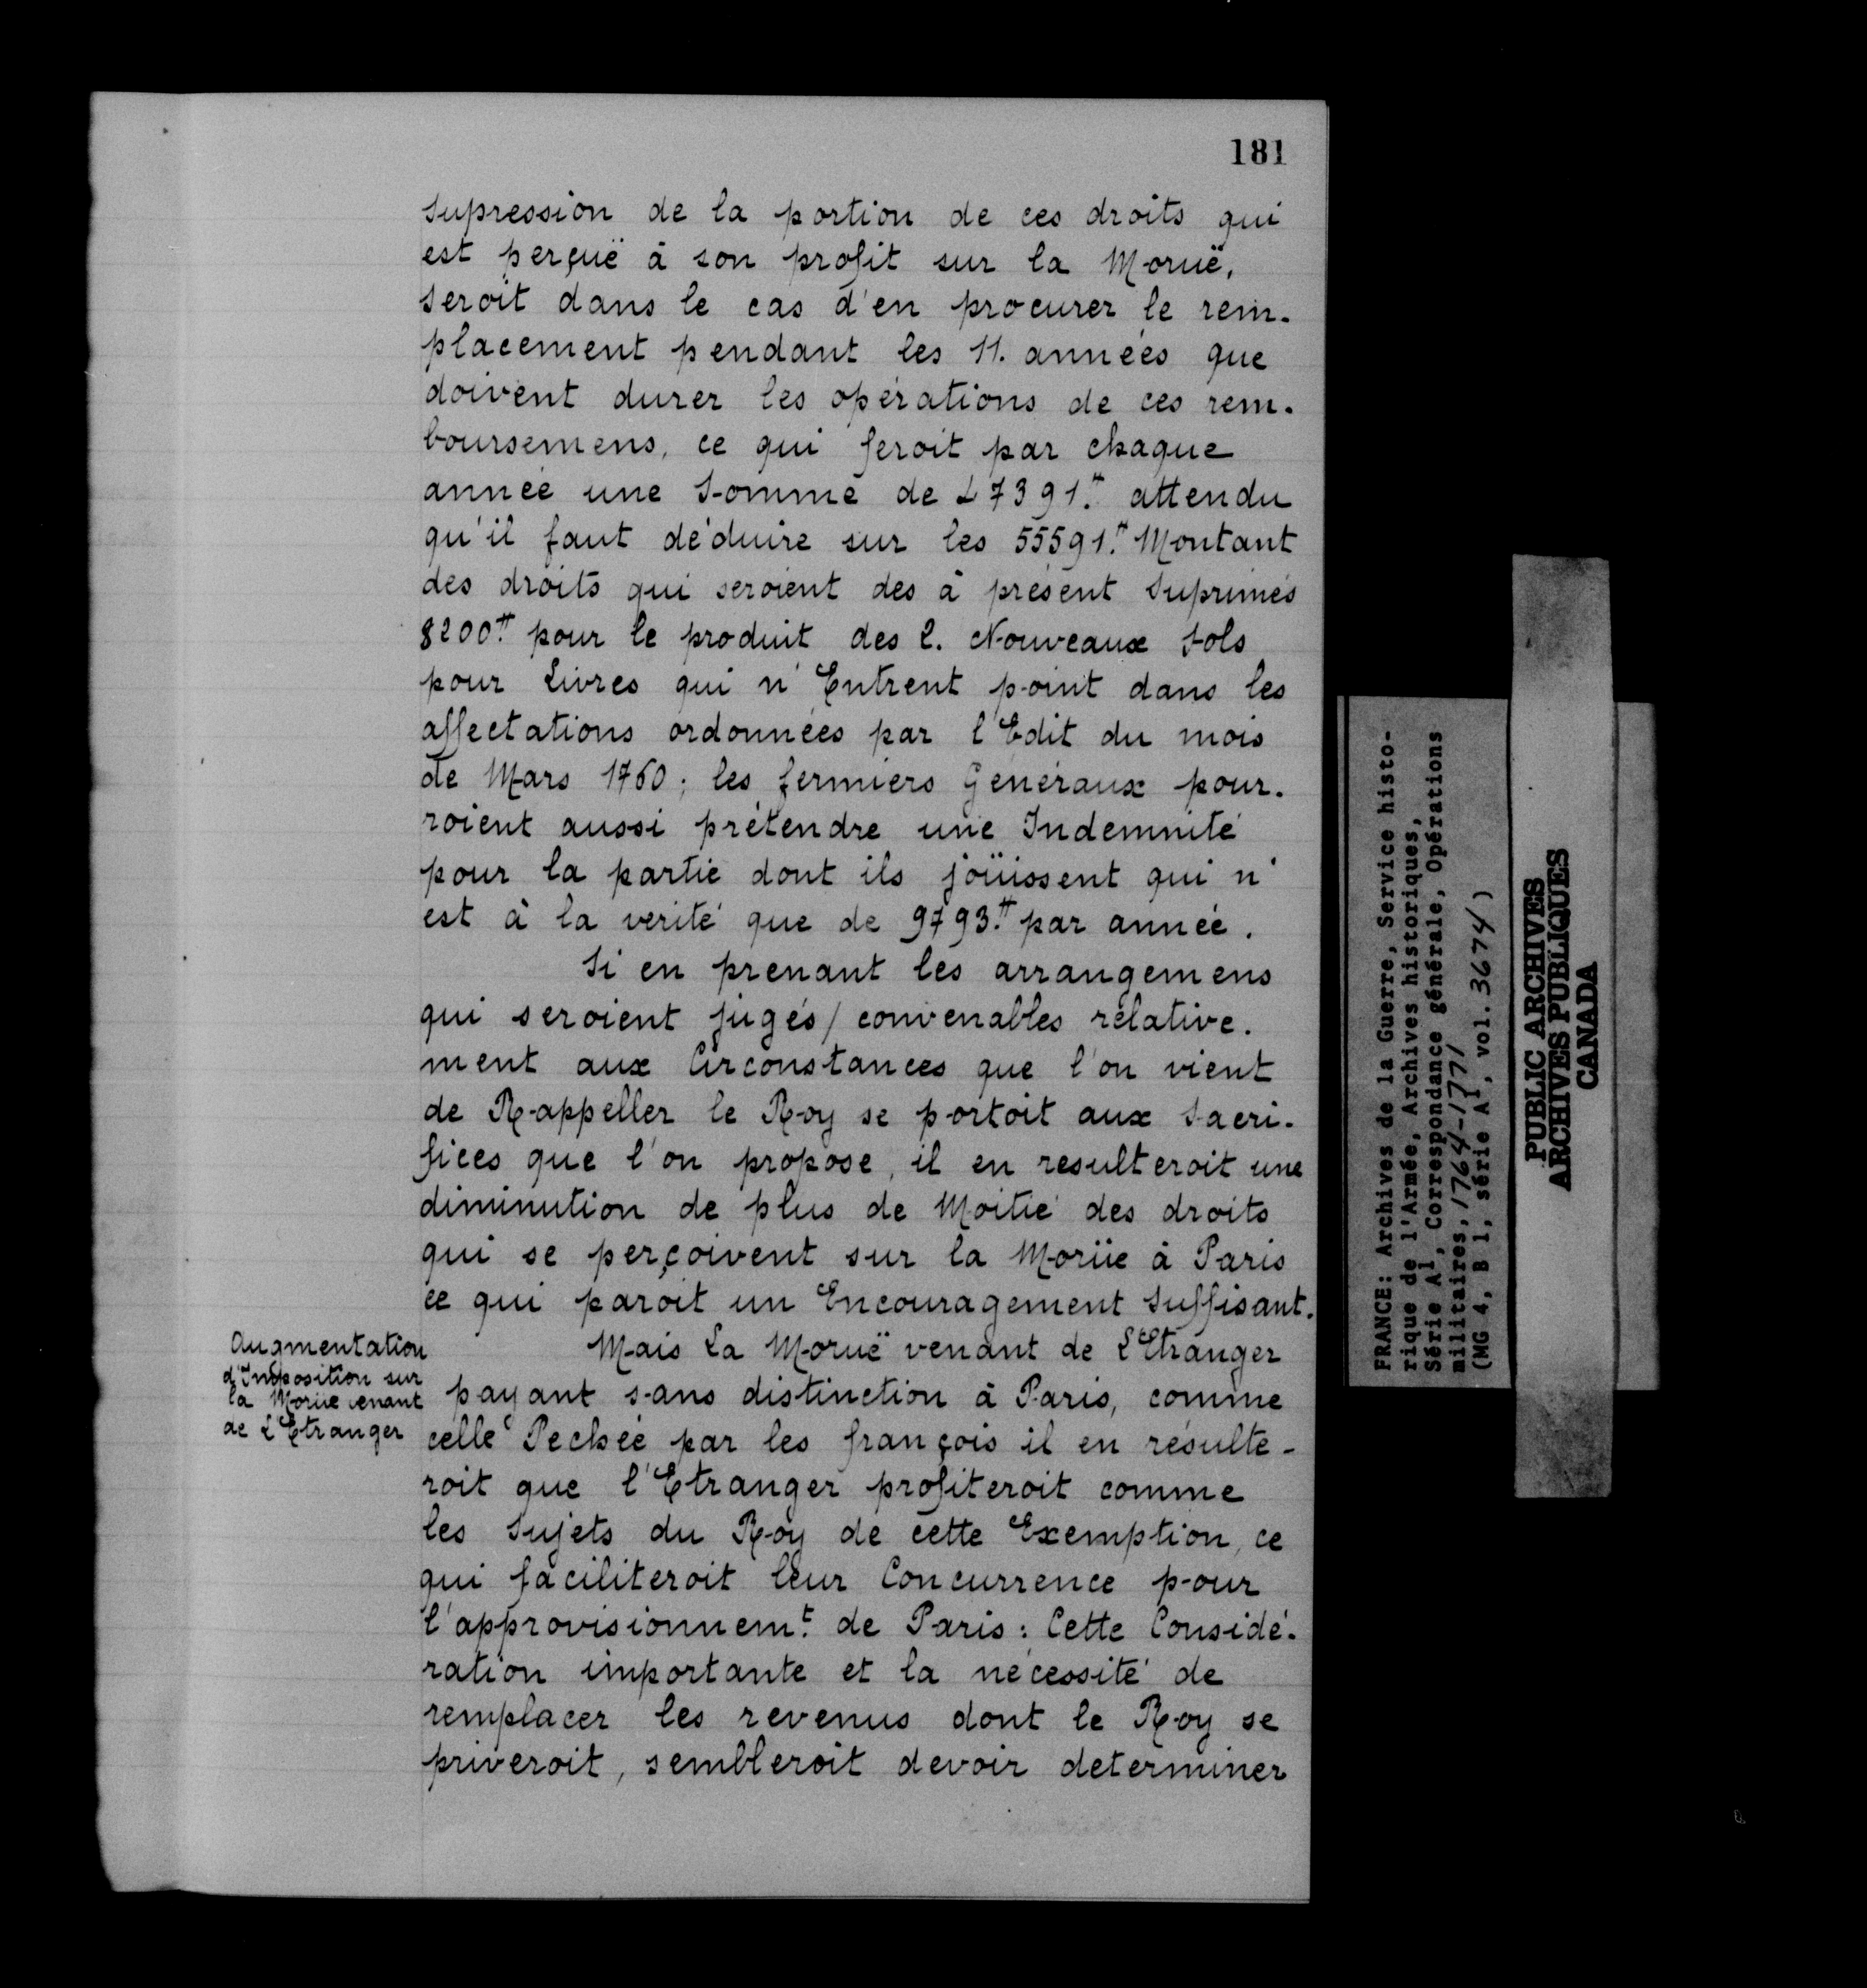 181
supression de la portion de ces droits qui
est perçuë à son profit sur la Moruë,
seroit dans le cas d'en procurer le rem-
placement pendant les 11. années que
doivent durer les opérations de ces rem-
boursemens, ce qui feroit par chaque
année une Somme de 47391.ᵗᵗ attendu
qu'il faut déduire sur les 55591.ᵗᵗ Montant
des droits qui seroient des à présent Suprimés
8200ᵗᵗ pour le produit des 2. Nouveaux Sols
pour Livres qui n'Entrent point dans les
affectations ordonnées par l'Edit du mois
de Mars 1760; les fermiers Généraux pour-
roient aussi prétendre une Indemnité
pour la partie dont ils joüissent qui n'
est à la verité que de 9793.ᵗᵗ par année.
Si en prenant les arrangemens
qui seroient jugés/convenables relative-
ment aux Circonstances que l'on vient
de Rappeller le Roy se portoit aux Sacri-
fices que l'on propose, il en resulteroit une
diminution de plus de Moitié des droits
qui se perçoivent sur la Morüe à Paris
ce qui paroit un Encouragement Suffisant.
Augmentation
d'Imposition sur
la Morüe venant
de L'Etranger
Mais La Moruë venant de L'Etranger
payant sans distinction à Paris, comme
celle Pechée par les françois il en résulte-
roit que l'Etranger profiteroit comme
les Sujets du Roy de cette Exemption, ce
qui faciliteroit leur Concurrence pour
l'approvisionnem.ᵗ de Paris: Cette Considé-
ration importante et la nécessité de
remplacer les revenus dont le Roy se
priveroit, sembleroit devoir determiner
FRANCE: Archives de la Guerre, Service histo-
rique de l'Armée, Archives historiques,
Série A1, Correspondance générale, Opérations
militaires, 1764-1771
(MG 4, B 1, série A1, vol. 3674)
PUBLIC ARCHIVES
ARCHIVES PUBLIQUES
CANADA